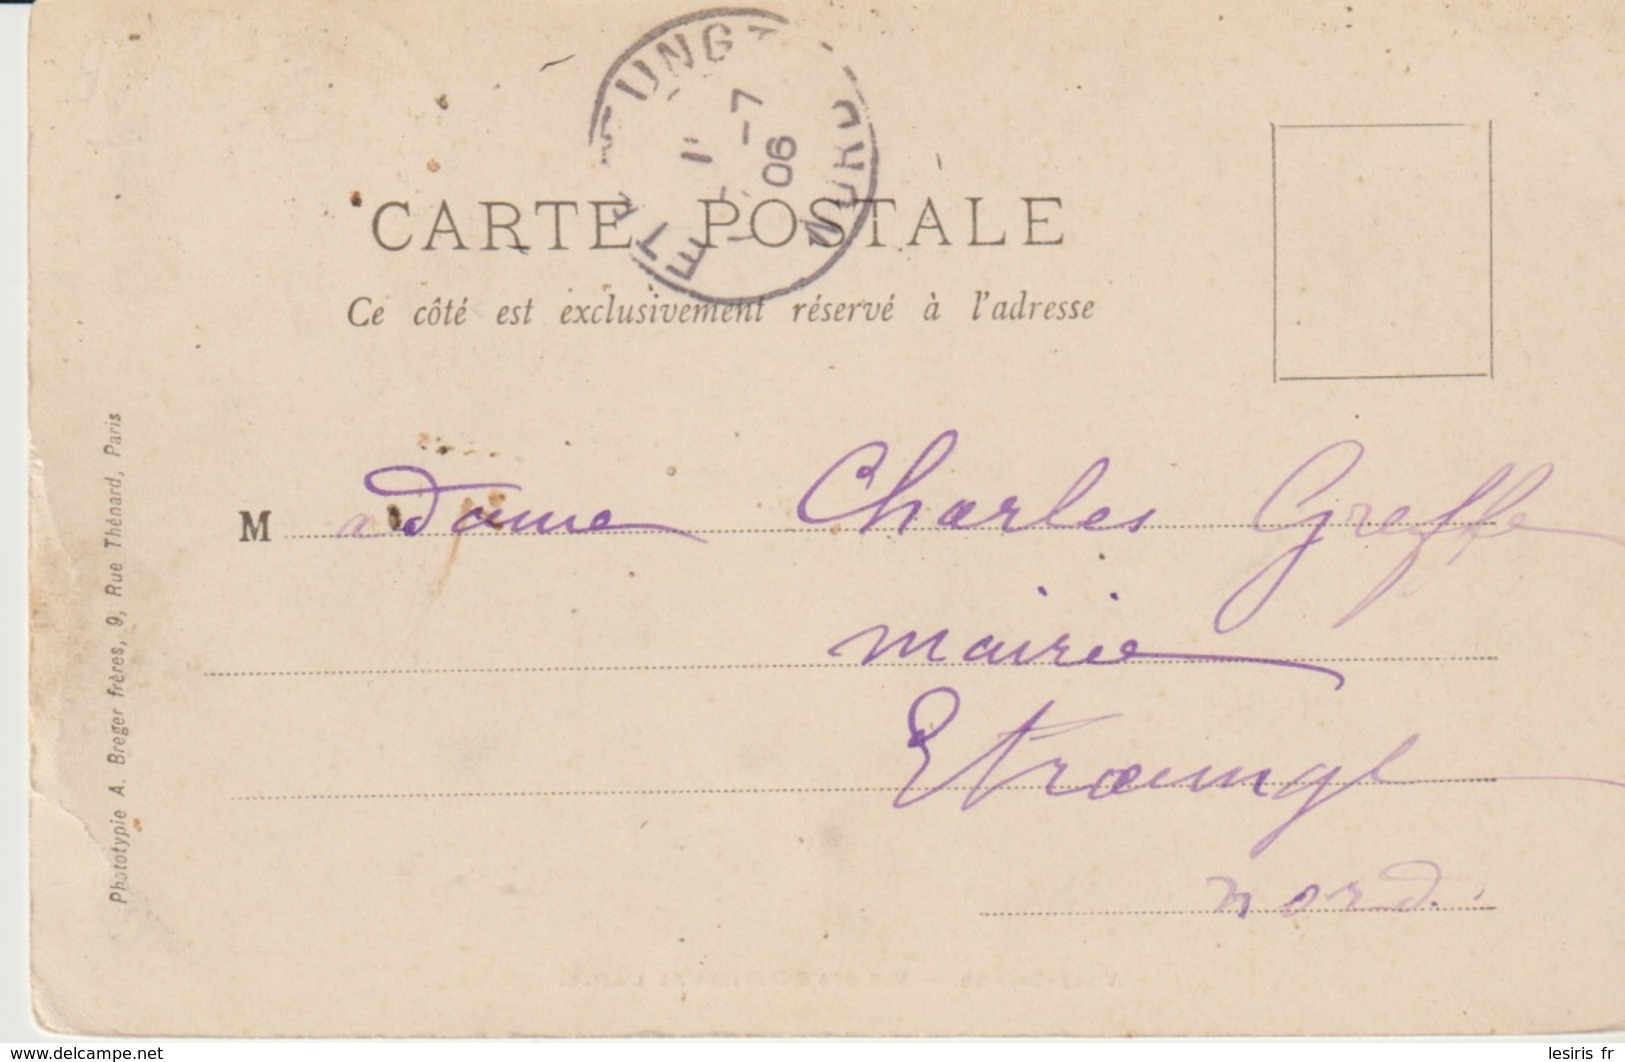 1 -7
06
NORD
CARTE POSTALE
Ce côté est exclusivement réservé à l'adresse
Madame Charles Greffe
mairie
Etroeungt
nord.
Phototypie A. Breger frères, 9, Rue Thénard, Paris
www.delcampe.net
lesiris fr